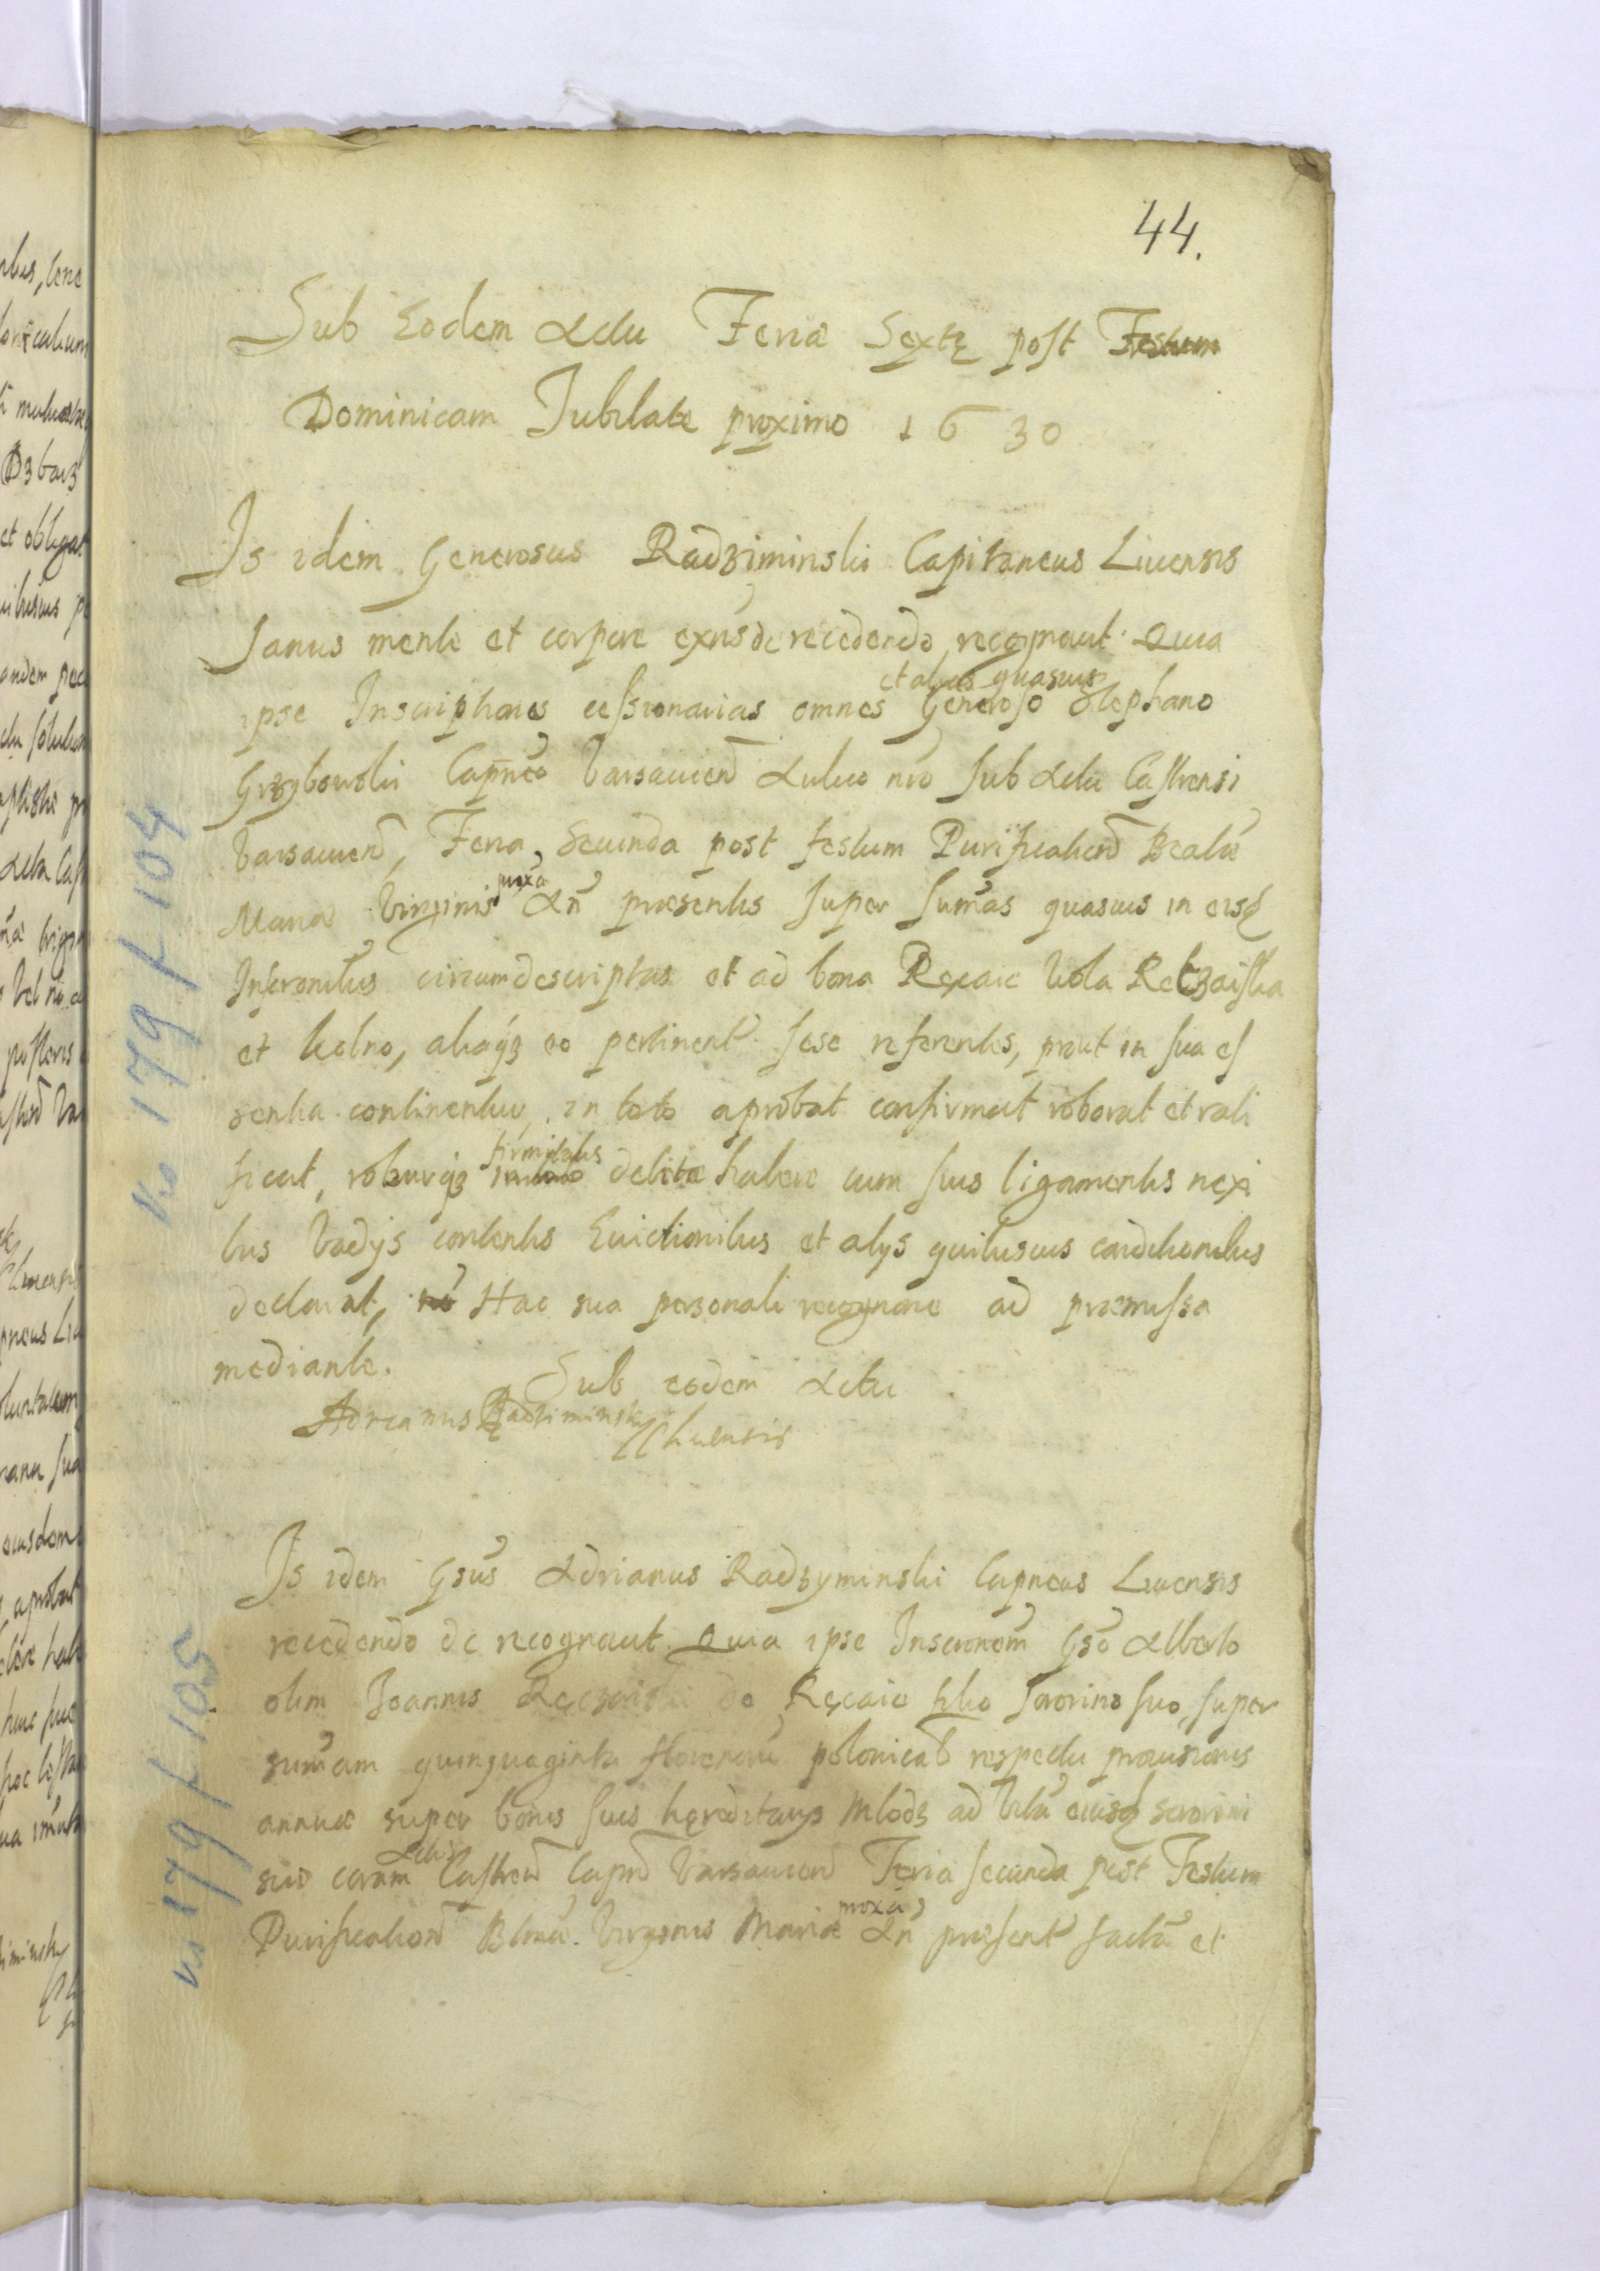 44.
Sub Eodem Actu Feriæ Sextæ post Festum
Dominicam Jubilate proximo 1630
Is idem Generosus Radziminski Capitaneus Liuensis
Sanus mente et corpore exñs de recedendo recognouit Quia
et alias quasuis
ipse Inscriptiones cessionarias omnes Generoso Stephano
Grzybowski Capneo Varsauien Aulico nro sub Actu Castrensi
Varsauien, Feria Secunda post festum Purificationis Beatæ
proxa
Mariæ Virginis An præsentis super sumas quasuis in eisd
Inscronibus circumdescriptas et ad bona Ręcaie Wola Retzaiska
et Wolno, aliaqz eo pertinent sese referentes, prout in sua es
sentia continentur, in toto aprobat confirmat roborat et rati
firmitatis
ficat, roburqz debitæ habere cum suis ligamentis nexi
bus Vadys contentis Euictionibus et alys quibusuis conditionibus
declarat, Hac sua personali recognone ad præmissa
mediante.
Sub eodem Actu
Adrianus Radziminsky
Liuensis
Is idem Gsus Adrianus Radzyminski Capneus Liuensis
recedendo de recognouit Quia ipse Inscronem Gso Alberto
olim Joannis Ręczaiski de Ręcaie filio sororino suo, super
sumam quinquaginta florenorum polonical respectu prouisionis
annuæ super bonis suis hęreditarys Mlodz ad Vitã eiusd sororini
Actis
sui coram Castren Capn Varsauien Feria secunda post Festum
proxã
Purificationis Btmæ Virginis Mariæ An præsent factã et
Vs 179 f 104
Vs 179 f 105